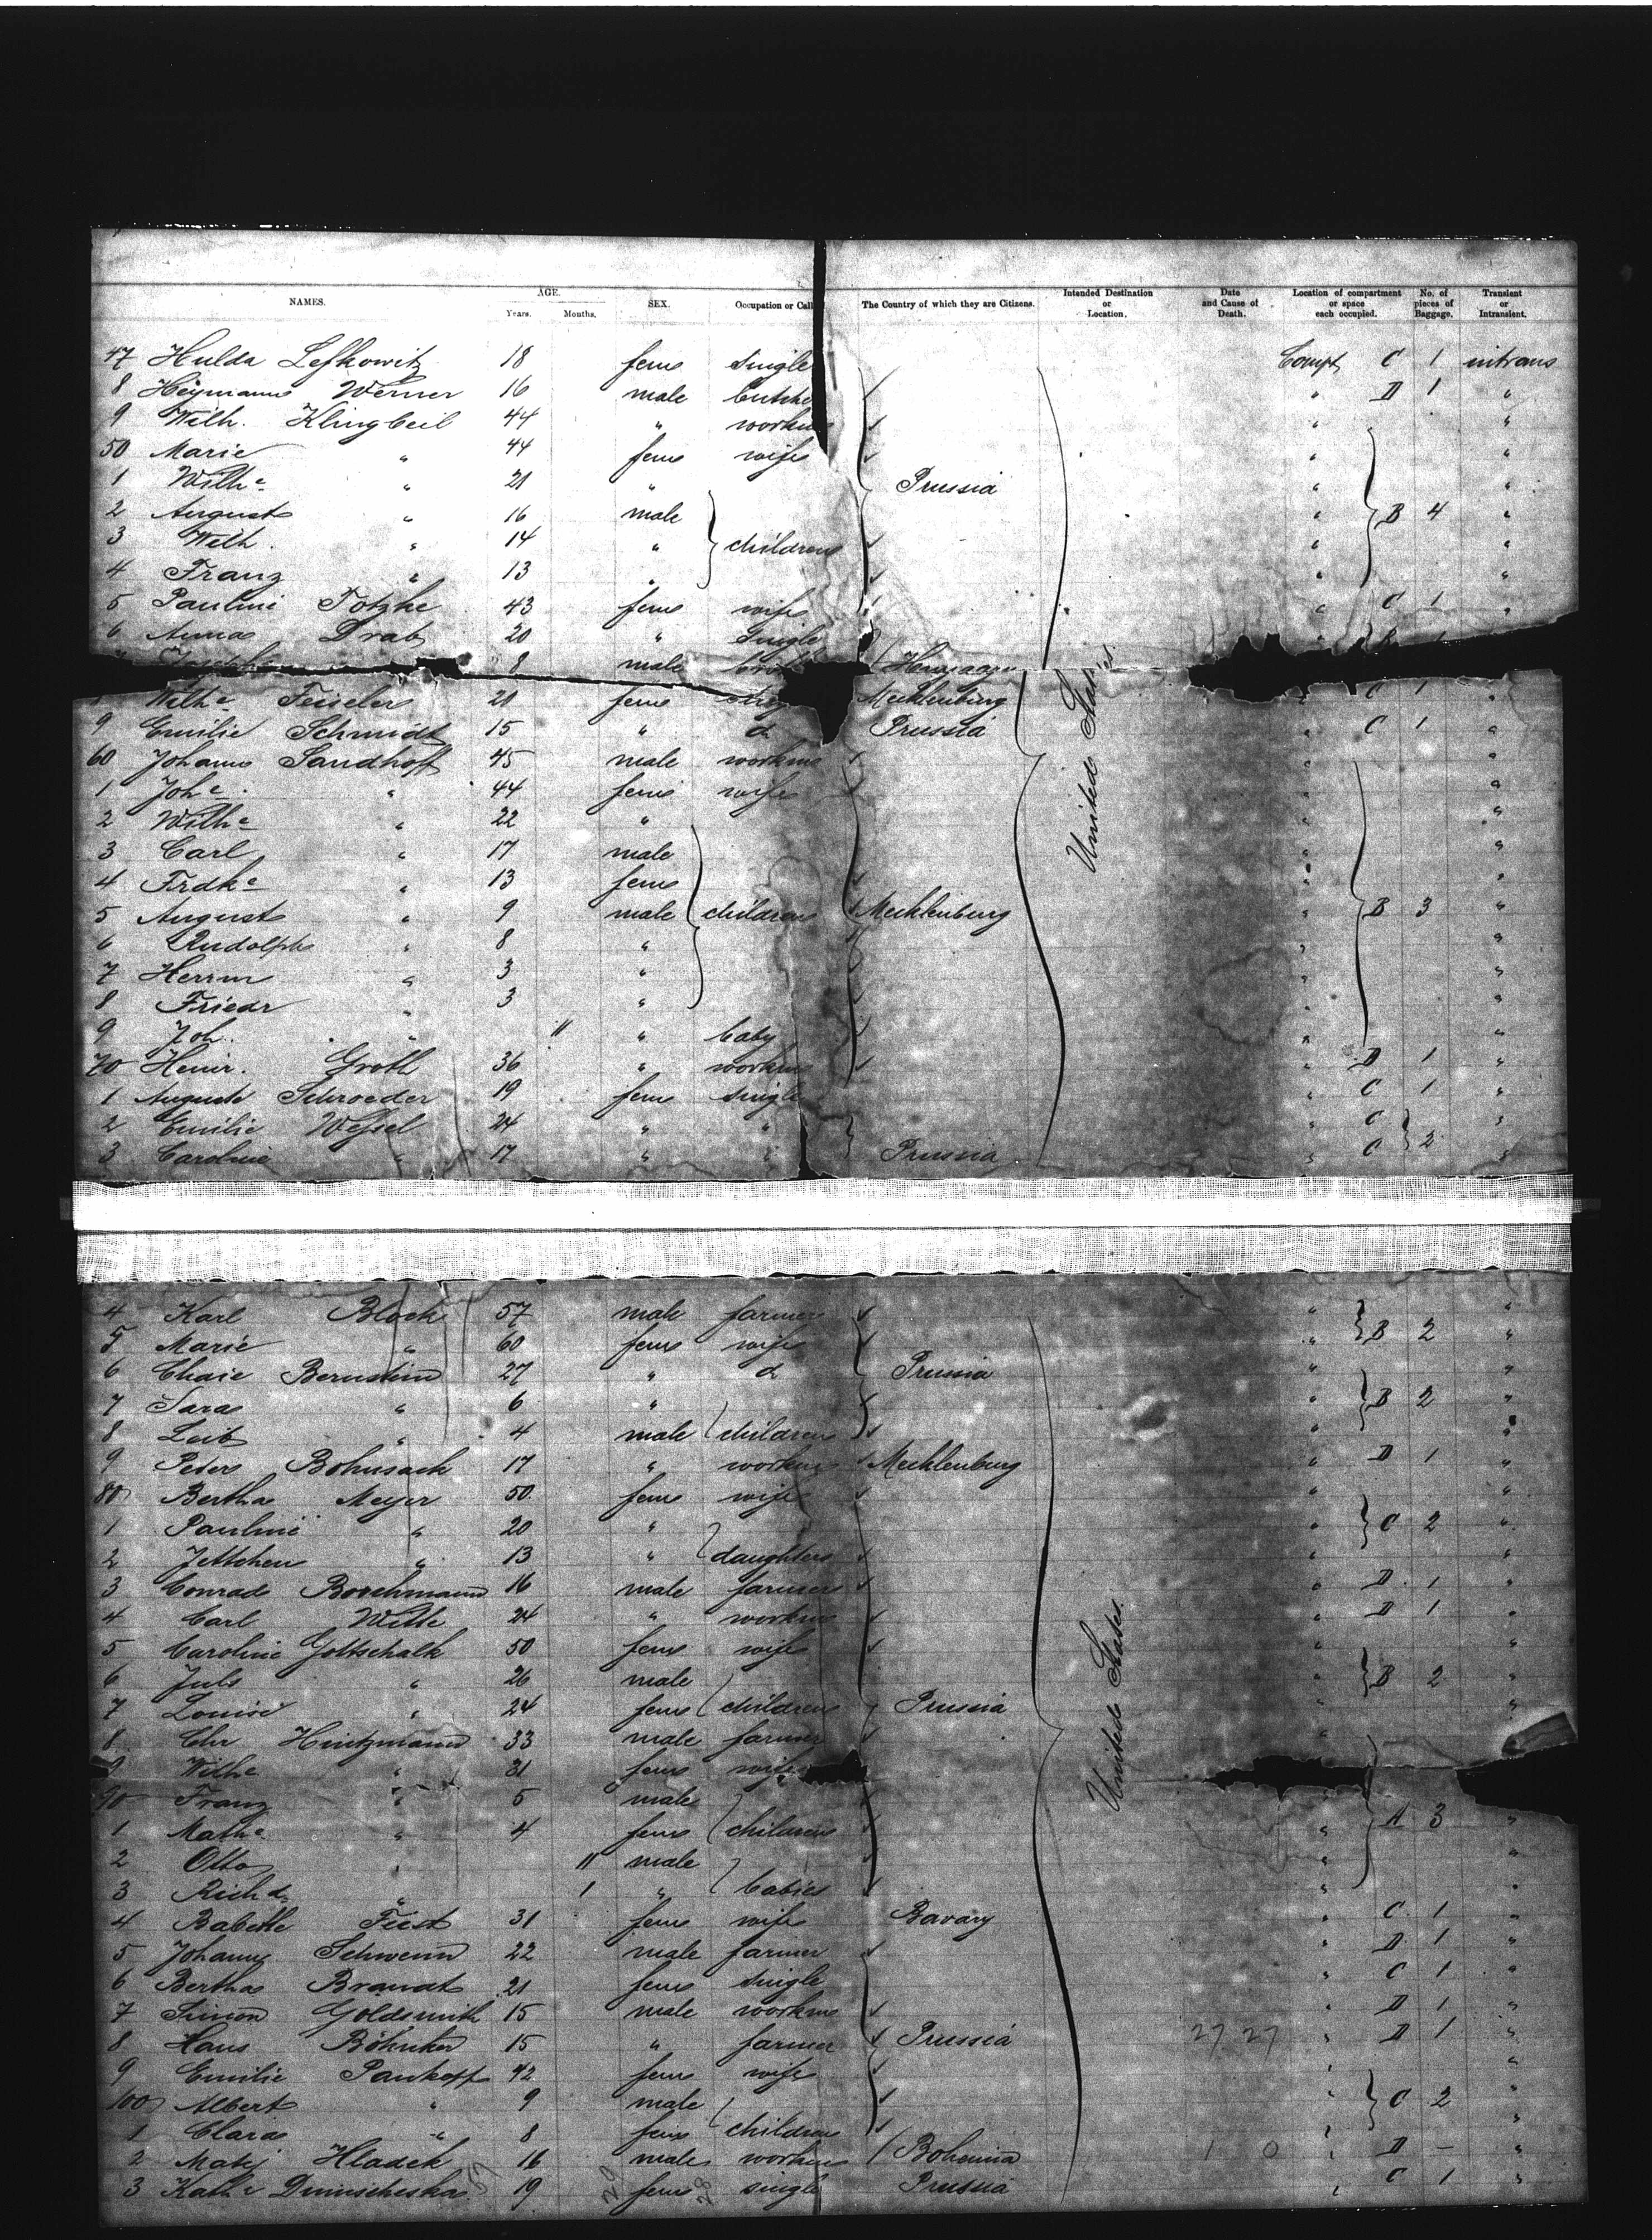 NAMES. AGE. Years. Months. SEX. Occupation or Call The Country of which they are Citizens. Intended Destination or Location. Date and Cause of Death. Location of compartment or space each occupied. No. of pieces of Baggage. Transient or Intransient.
47 Hulda Lefkowitz 18 fem single Compt C 1 intrans
8 Heymann Werner 16 male butche " D 1 "
9 Wilh. Klingbeil 44 " workm " "
50 Marie " 44 fem wife " "
1 Wilhe " 21 " Prussia " "
2 August " 16 male " B 4 "
3 Wilh. " 14 " children " "
4 Franz " 13 " " "
5 Pauline Totzke 43 fem wife " C 1 "
6 Anna Drab 20 " single "
8 male
8 Wilhe Feiseler 21 fem Mecklenburg C 1 "
9 Emilie Schmidt 15 " d Prussia C 1 "
60 Johann Sandhoff 45 male workm " "
1 Johe. " 44 fem wife " "
2 Wilhe " 22 " " "
3 Carl " 17 male " "
4 Frdke " 13 fem " "
5 August " 9 male children Mecklenburg " B 3 "
6 Rudolph " 8 " " "
7 Herrm " 3 " " "
8 Friedr " 3 " " "
9 Joh. " 11 " baby " "
70 Heinr. Groth 36 " workm " D 1 "
1 Auguste Schroeder 19 fem single " C 1 "
2 Emilie Wessel 24 " " " C "
3 Caroline " 17 " " Prussia " C 2 "
United States.
4 Karl Block 57 male farmer " "
5 Marie " 60 fem wife " B 2 "
6 Chaie Bernstein 27 " d Prussia " "
7 Sara " 6 " " B 2 "
8 Leib " 4 male children " "
9 Peter Bohnsack 17 " workm Mecklenburg " D 1 "
80 Bertha Meyer 50 fem wife " "
1 Pauline " 20 " " C 2 "
2 Jettchen " 13 " daughters " "
3 Conrad Borchmann 16 male farmer " D 1 "
4 Carl Witte 24 " workm " D 1 "
5 Caroline Gottschalk 50 fem wife " "
6 Juls " 26 male " B 2 "
7 Louise " 24 fem children Prussia " "
8 Chr Hintzmann 33 male farmer "
9 Wilhe " 31 fem wife
90 Franz " 5 male
1 Mathe " 4 fem children " A 3 "
2 Otto " 11 male " "
3 Richd " 1 " babies " "
4 Babette Feist 31 fem wife Bavary " C 1 "
5 Johann Schwenn 22 male farmer " D 1 "
6 Bertha Brandt 21 fem single " C 1 "
7 Simon Goldsmith 15 male workm " D 1 "
8 Hans Böhnker 15 " farmer Prussia 27 27 " D 1 "
9 Emilie Pankopf 42 fem wife "
100 Albert " 9 male " C 2 "
1 Clara " 8 fem children " "
2 Matij Hladek 16 male workm Bohemia 1 0 " D – "
3 Kathe 19 29 fem 28 single Prussia " C 1 "
United States.